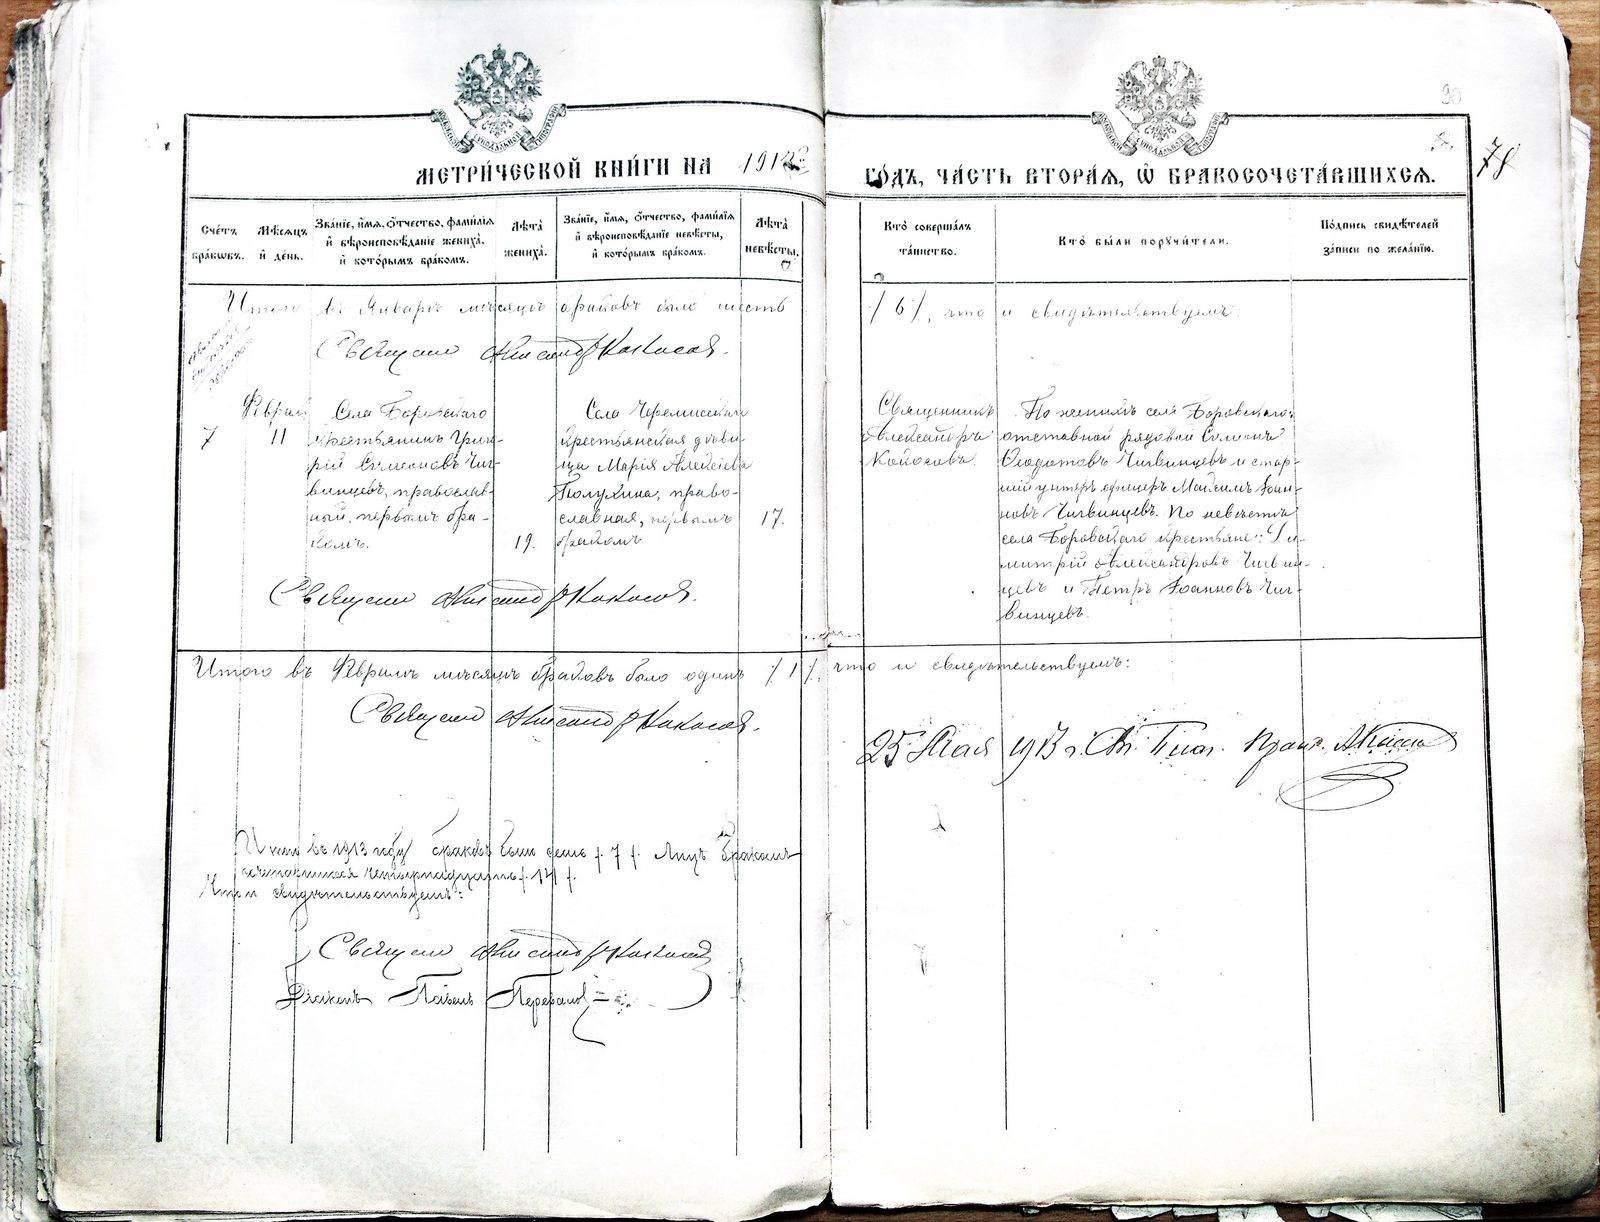 30
78
МЕТРИ́ЧЕСКОЙ КНИ́ГИ НА 1913
ГО́ДЪ, ЧА́СТЬ ВТОРА́Я, Ѡ БРАКОСОЧЕТА́ВШИХСЯ.
Сче́тъ бра́ковъ.
Мѣ́сяцъ и́ де́нь.
Зва́нїе, и́мя, о́тчество, фами́лїя и́ вѣроисповѣ́данїе жениха̀, и́ кото́рымъ бра́комъ.
Лѣ́та жениха̀.
Зва́нїе, и́мя, о́тчество, фами́лїя и́ вѣроисповѣ́данїе невѣ́сты, и́ кото́рымъ бра́комъ.
Лѣ́та невѣ́сты.
Кто̀ соверша́лъ та́инство.
Кто̀ бы́ли поручи́тели.
По́дпись свидѣ́телей за́писи по жела́нїю.
Итого въ Январѣ мѣсяцѣ браковъ было шесть /6/, что и свидѣтельствуемъ.
Священникъ Александръ
7
Феврал
11
Села Боровскаго
крестьянинъ Григо-
рій Симеоновъ Чиг-
винцевъ, православ-
ный, первымъ бра-
комъ.
19.
Села Черемисскаго
крестьянская дѣви-
ца Марія Алексіева
Полухина, право-
славная, первымъ
бракомъ
17.
Священникъ
Александръ
По женихѣ села Боровскаго:
отставной рядовой Симеонъ
Ѳеодотовъ Чигвинцевъ и стар-
шій унтеръ офицеръ Максимъ Іоан-
новъ Чигвинцевъ. По невѣстѣ
села Боровскаго крестьяне: Ди-
митрій Александровъ Чигвин-
цевъ и Петръ Іоанновъ Чиг-
винцевъ.
Священникъ Александръ
Итого въ Февралѣ мѣсяцѣ браковъ было одинъ /1/, что и свидѣтельствуемъ:
Священникъ Александръ
25 Мая 1913 г.
Итого въ 1913 году браковъ было семь /7/ Лицъ бракомъ
сочетавшихся четырнадцать /14/.
Что и свидѣтельствуемъ:
Священникъ Александръ
Діаконъ Павелъ